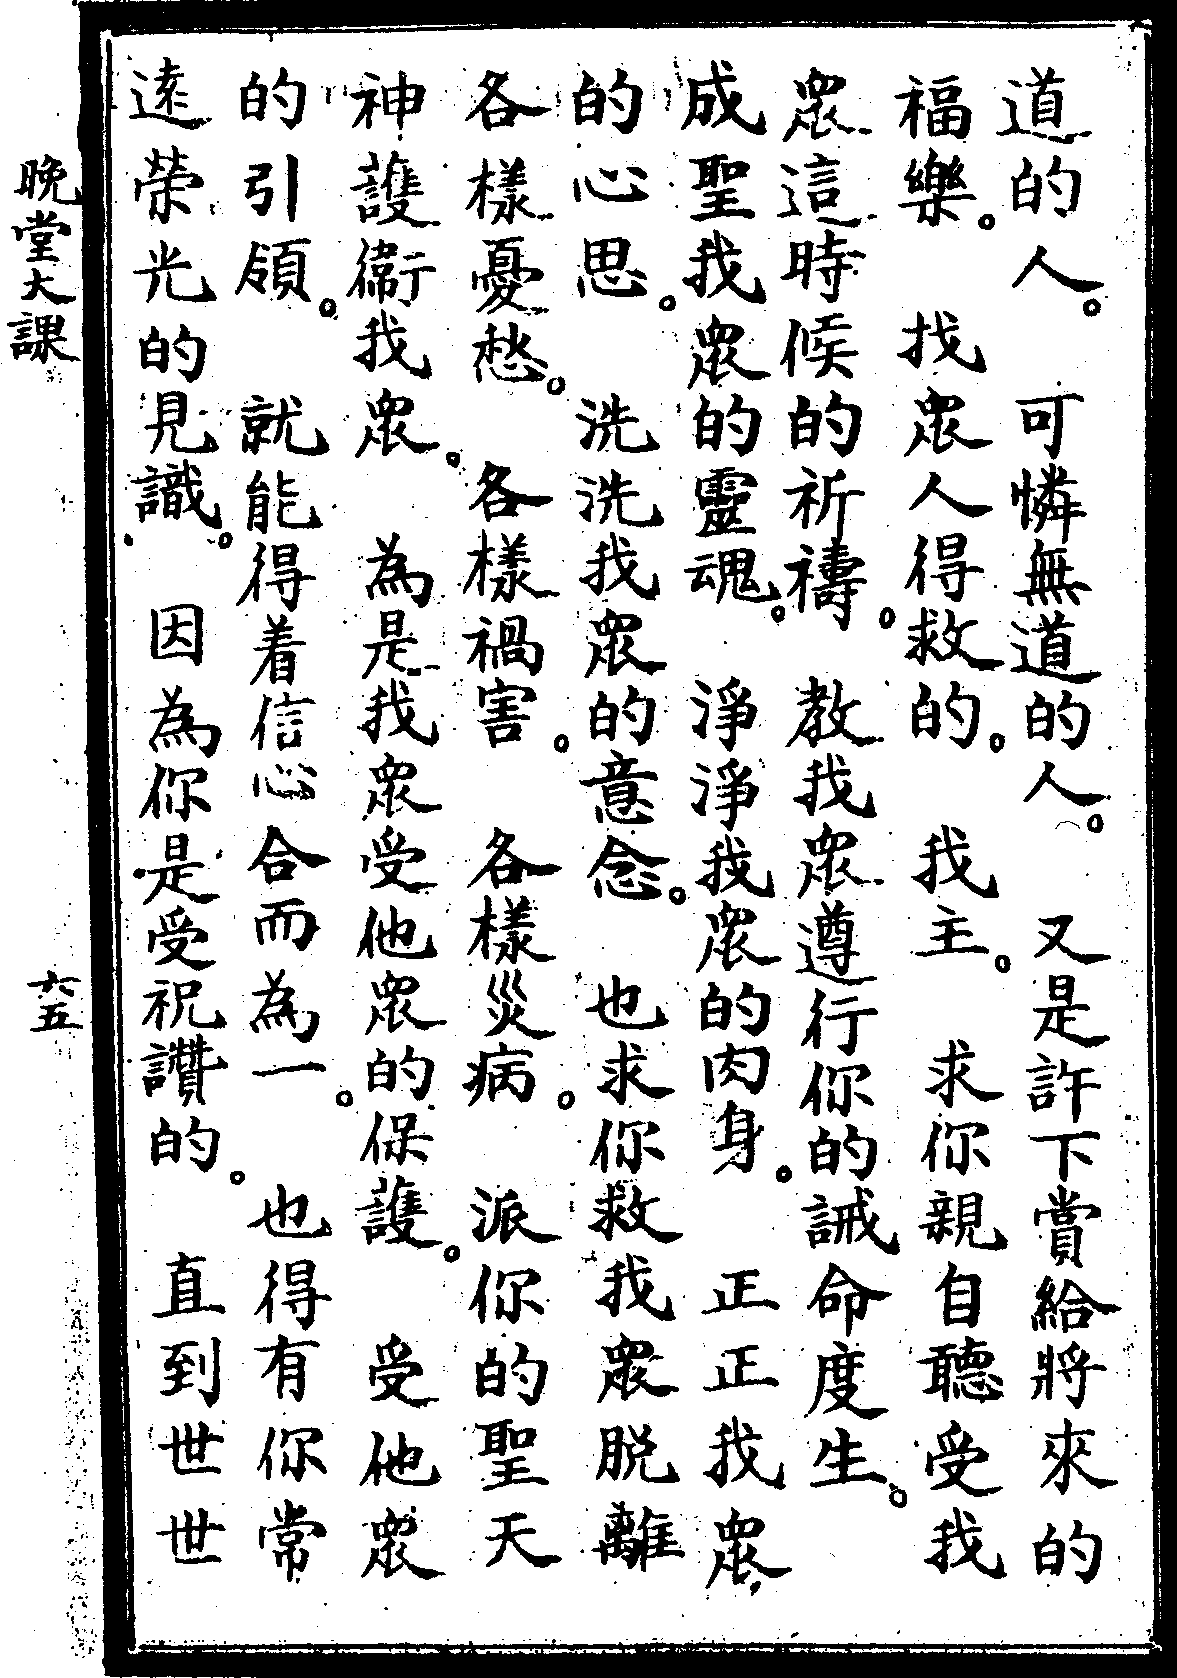 道的人。 可憐無道的人。 又是許下賞給將來的
福樂。 找眾人得救的。 我主。 求你親自聽受我
眾這時候的祈禱。 教我眾遵行你的誡命度生。
成聖我眾的靈魂。 淨淨我眾的肉身。 正正我眾
的心思。 洗洗我眾的意念。 也求你救我眾脫離
各樣憂愁。 各樣禍害。 各樣災病。 派你的聖天
神護衛我眾。 為是我眾受他眾的保護。 受他眾
的引領。 就能得着信心合而為一。 也得有你常
遠榮光的見識。 因為你是受祝讚的。 直到世世
晚堂大課
六五